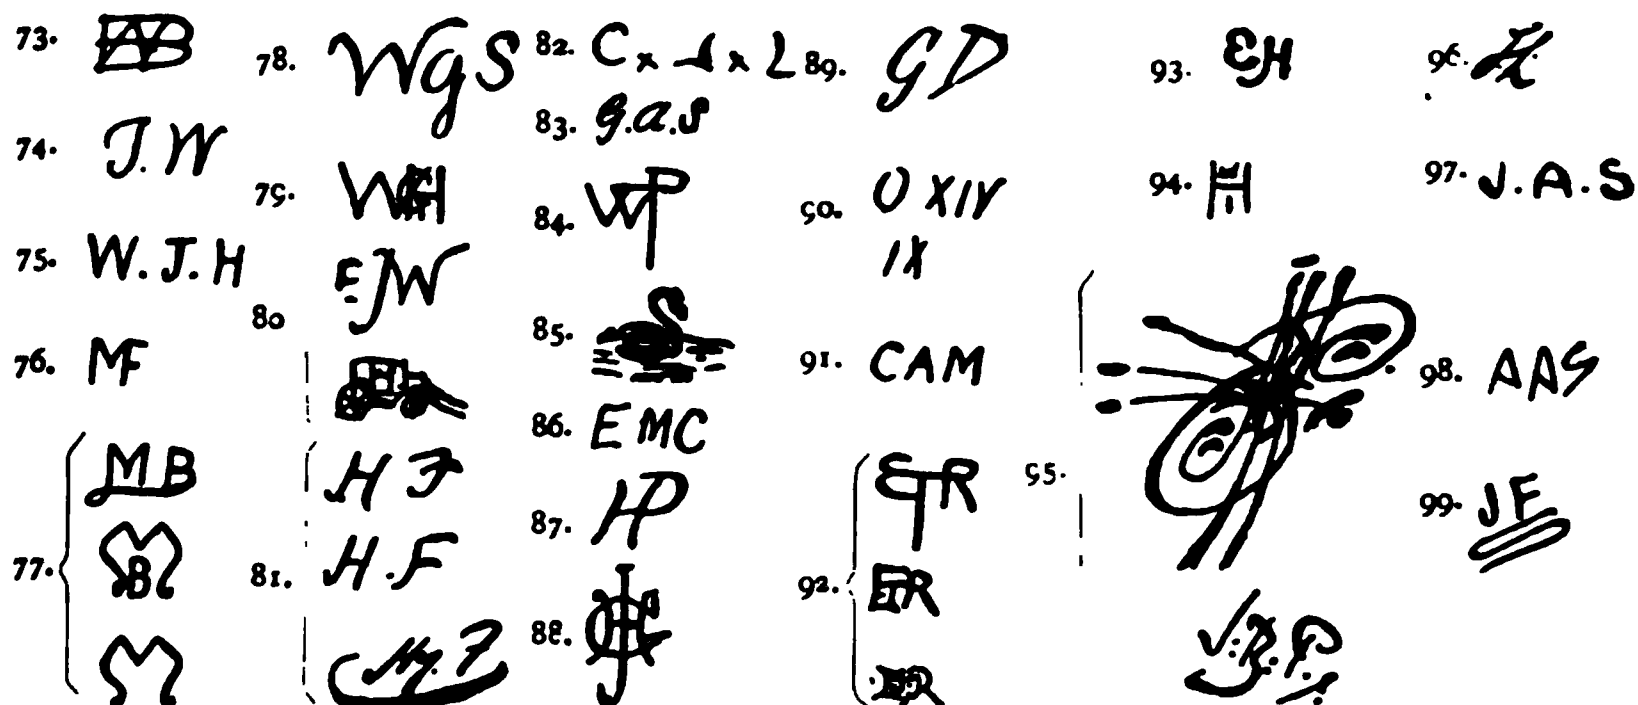 73.
74. J. W
75. W. J. H
76. MF
77. M B
B
M
78. W g S
79. WGH
80 E JW
81. H F
H. F
Hy. F
82. C x J x L
83. G. a. S
84. WP
85.
86. E M C
87. HP
88.
89. G D
90. O XIV
IX
91. C A M
92. ETR
ETR
93. EH
94. EH
95.
96.
97. J. A. S
98. A A S
99. J F